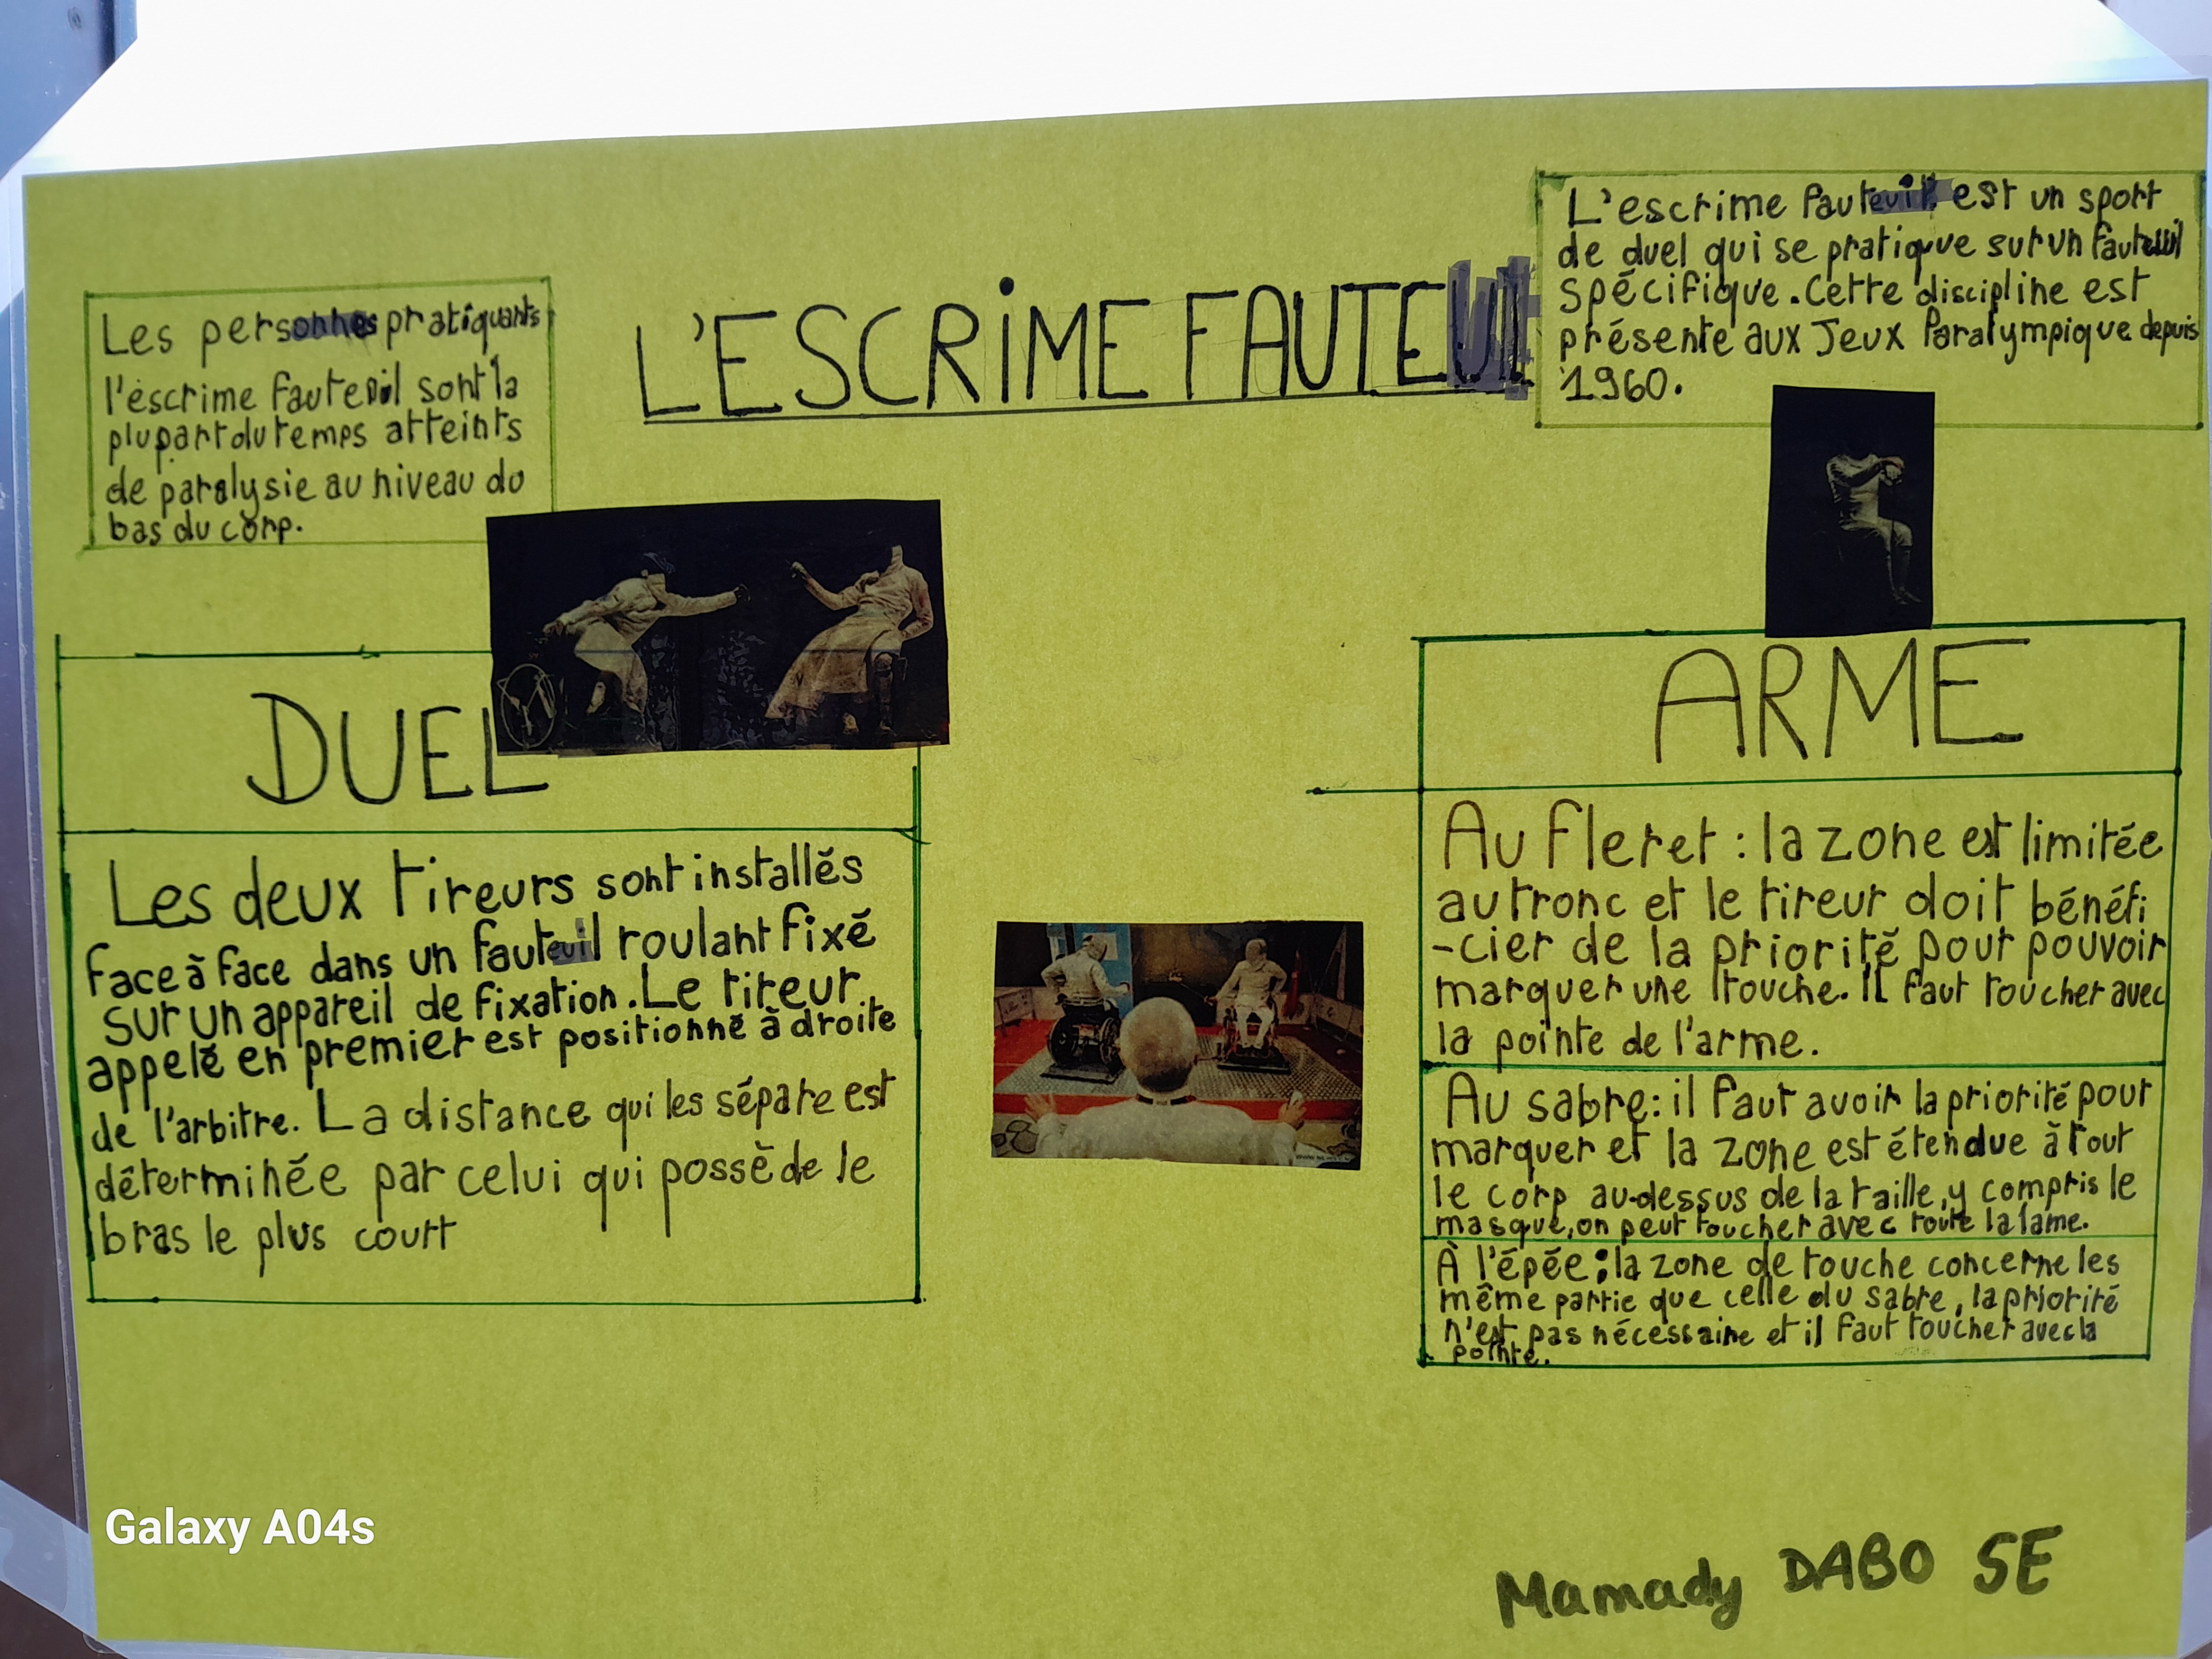 L'ESCRIME FAUTEUIL
Les personnes pratiquants
l'éscrime fauteuil sont la
plupart du temps atteints
de paralysie au niveau du
bas du corp.
L'escrime fauteuil est un sport
de duel qui se pratique sur un fauteuil
spécifique. Cette discipline est
présente aux Jeux Paralympique depuis
1960.
DUEL
Les deux tireurs sont installés
face à face dans un fauteuil roulant fixé
sur un appareil de fixation. Le tireur
appelé en premier est positionné à droite
de l'arbitre. La distance qui les sépare est
déterminée par celui qui possède le
bras le plus court
ARME
Au fleret : la zone est limitée
au tronc et le tireur doit bénéfi
-cier de la priorité pour pouvoir
marquer une touche. Il faut toucher avec
la pointe de l'arme.
Au sabre : il faut avoir la priorité pour
marquer et la zone est étendue à tout
le corp au-dessus de la taille, y compris le
masque, on peut toucher avec toute la lame.
À l'épée : la zone de touche concerne les
même partie que celle du sabre, la priorité
n'est pas nécessaire et il faut toucher avec la
pointe.
Galaxy A04s
Mamady DABO 5E